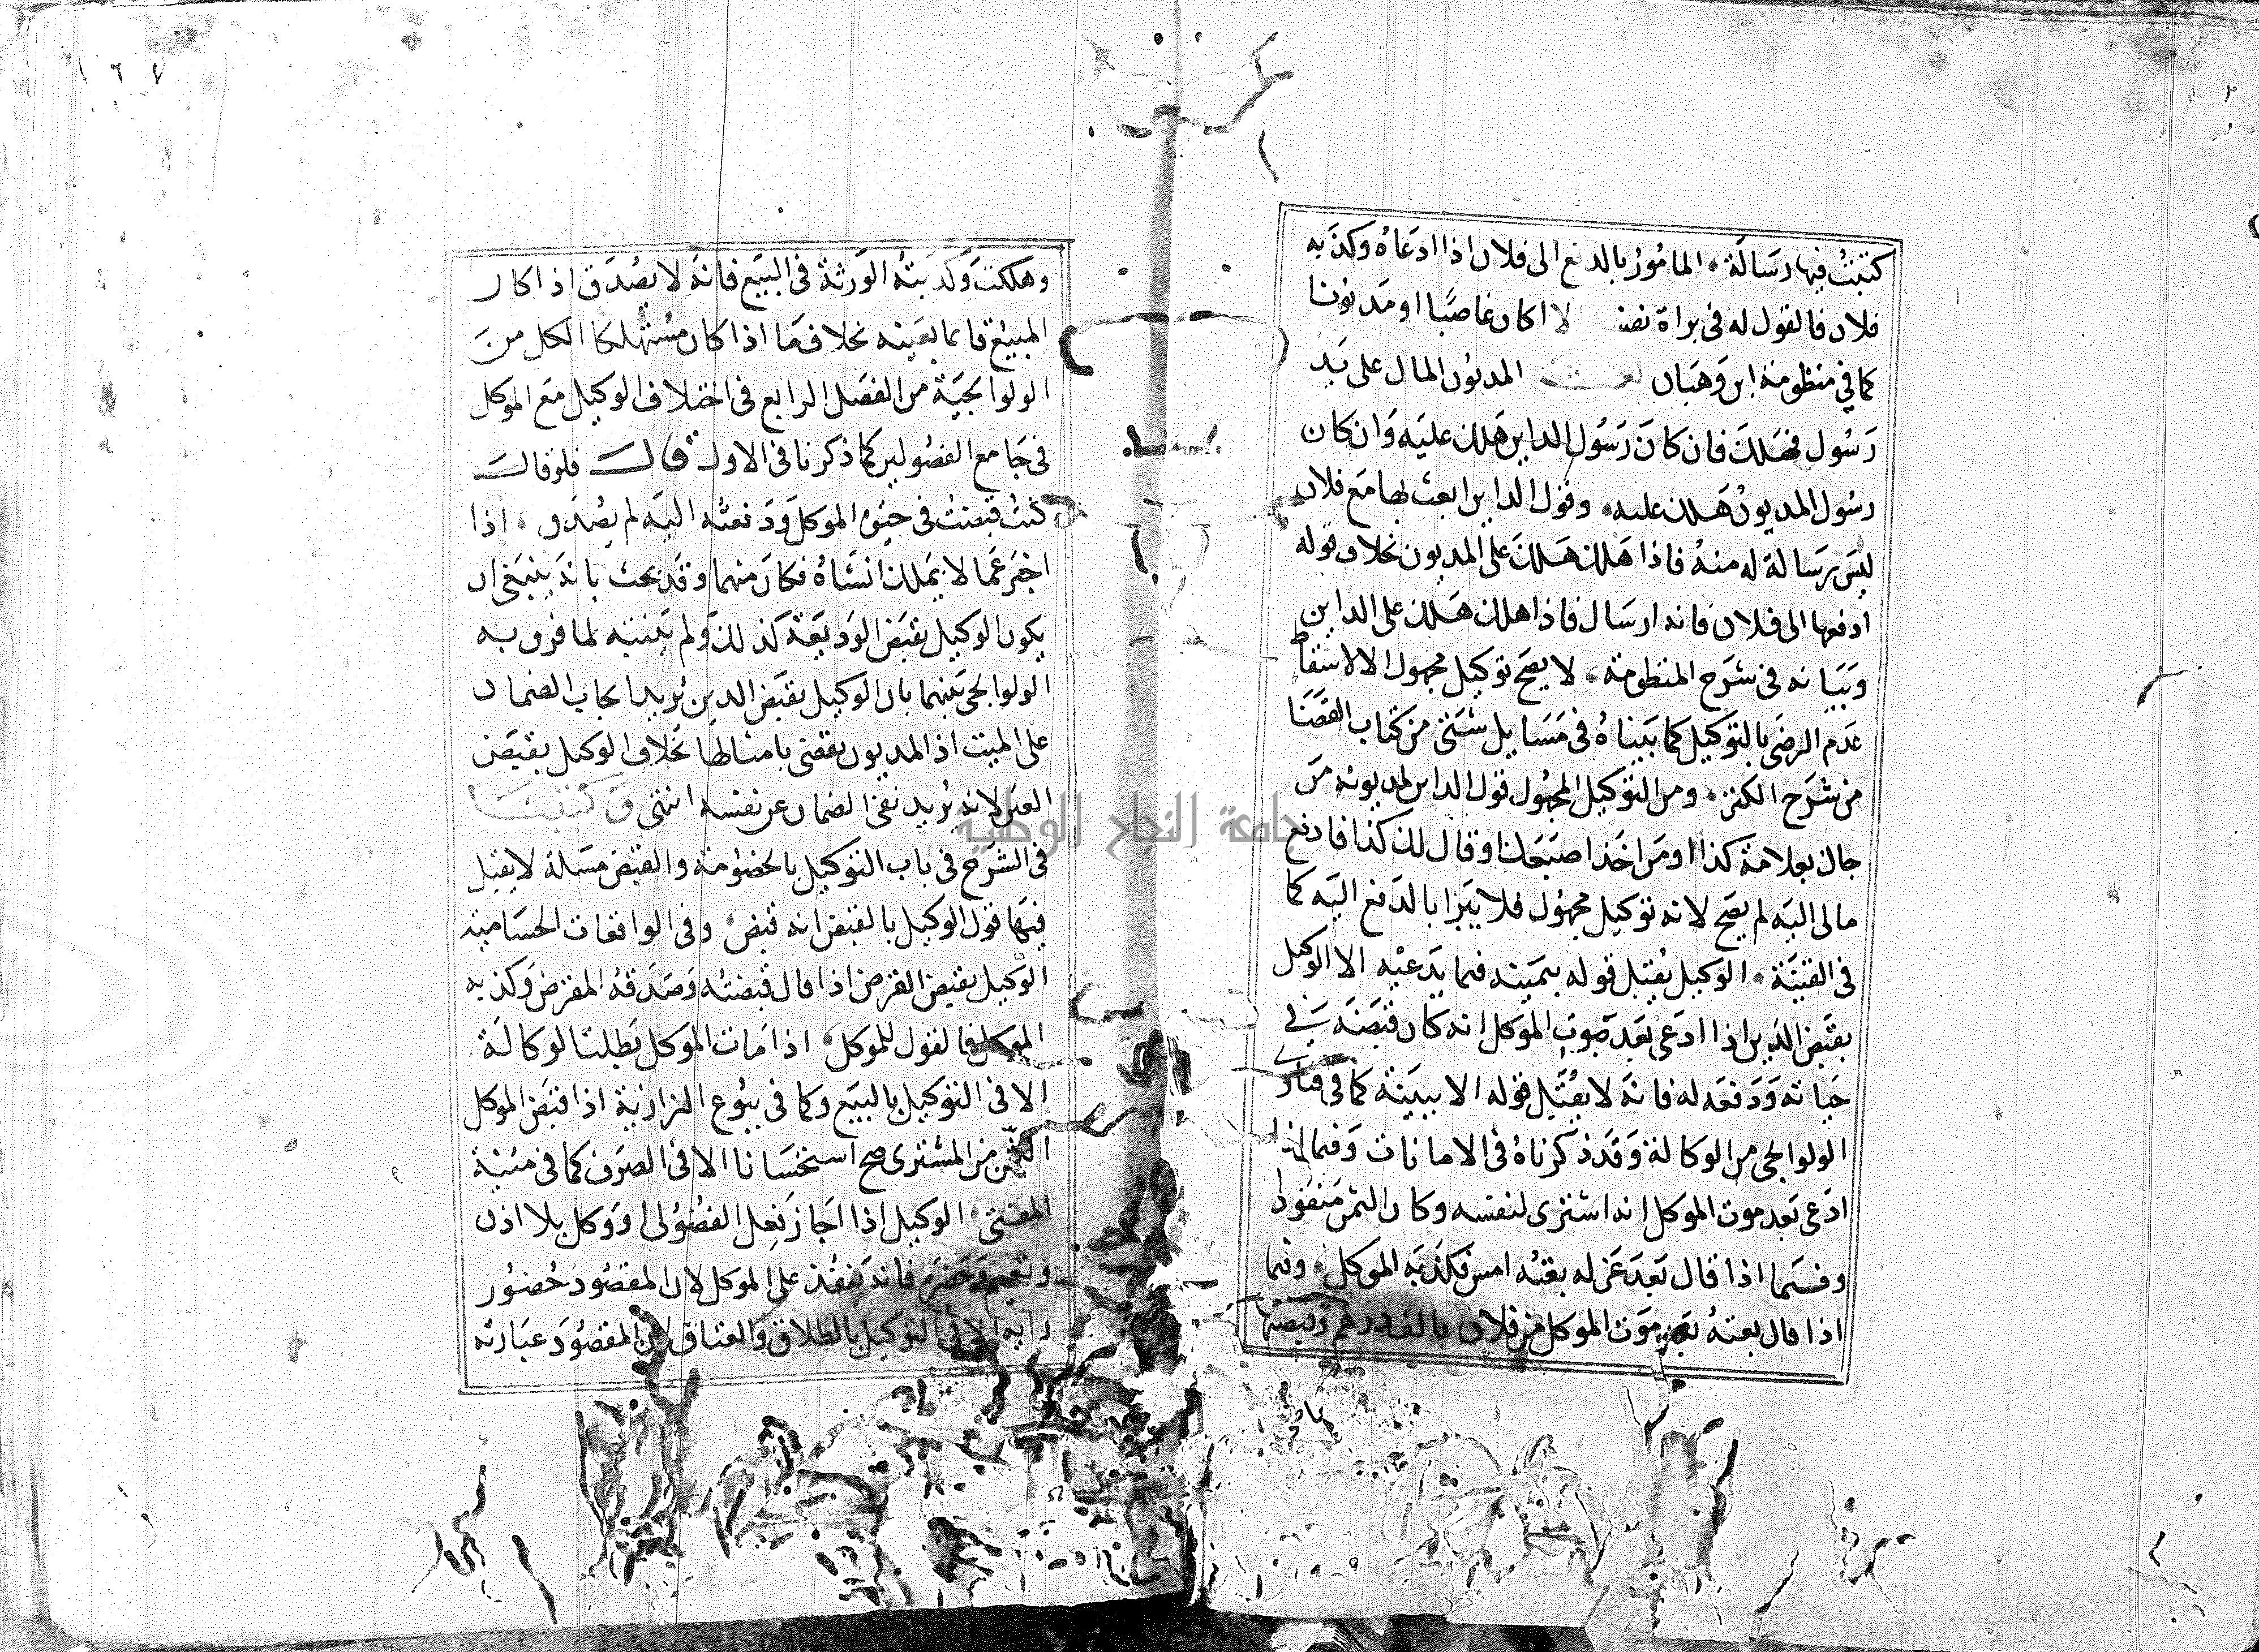 كتبتُ فيها رسالة، المامُورُ بالدفع الى فلان اذا ادعاهُ وكذبه
فلان فالقول له في براة نفسه الا اكان غاصبًا او مديونا
كما في منظومة ابن وهبان المديون المال على يد
رسُول فهلك فان كان رسُول الداين هلك عليه وان كان
رسُول المديون هلك عليه، وقول الداين ابعث لها مع فلان
ليس برسالة له منه فاذا هلك هلك على المديون بخلاف قوله
ادفعها الى فلان فانه ارسال فاذا هلك هلك على الداين
وبيانه في شرح المنظومة، لا يصح توكيل مجهول الا لاسقاط
عدم الرضى بالتوكيل كما بيناهُ في مسايل شتى من كتاب القضا
من شرح الكنز، ومن التوكيل المجهول قول الداين لمديونه من
جاك بعلامة كذا او من اخذ اصبعك او قال لك كذا فادفع
مالى اليه لم يصح لانه توكيل مجهُول فلا يبرا بالدفع اليه كما
في القنية، الوكيل يُقبل قوله بيمينه فيما يدعيه الا الوكيل
بقبض الدين اذا ادعى بعد موت الموكل انه كان قبضه في
حياته ودفعه له فانه لا يُقبل قوله الا ببينة كما في فتاوى
الولوالجي من الوكالة وقد ذكرناهُ في الامانات وفيما اذا
ادعى بعد موت الموكل انه اشترى لنفسه وكان الثمن منقودا
وفيما اذا قال بعد عزله بعتُه امس فكذبه الموكل، وفيما
اذا قال بعتهُ بعد موت الموكل من فلان بالف درهم وقبضتها
وهلكت وكذبتهُ الورثة في البيع فانه لا يصُدق اذا كان
المبيع قايما بعينه بخلاف ما اذا كان مستهلكا الكل من
الولوالجية من الفصل الرابع في اختلاف الوكيل مع الموكل
في جامع الفصُولين كما ذكرنا في الاول قال فلو قال
كنتُ قبضت في حيوة الموكل ودفعته اليه لم يصُدق، اذا
اخبر عما لا يملك انشاهُ فكان متهما وقد بحث بانه ينبغي ان
يكون الوكيل بقبض الوديعة كذلك ولم يتنبه لما فرق به
الولوالجي بينهما بان الوكيل بقبض الدين يُريد ايجاب الضمان
على الميت اذ الديون تقضى بامثالها بخلاف الوكيل بقبض
العين لانه يُريد نفى الضمان عن نفسه انتهى وكتبت
في الشرح في باب التوكيل بالخصُومة والقبض مسلة لا يقبل
فيها قول الوكيل بالقبض انه قبض، وفي الواقعات الحسامية
الوكيل بقبض القرض اذا قال قبضته وصدقهُ المقرض وكذبه
الموكل فالقول للموكل، اذا مات الموكل بطلت الوكالة
الا في التوكيل بالبيع وكما في بيُوع البزازية اذا قبض الموكل
الثمن من المشترى صح استحسانا الا في الصرف كما في منية
المفتي، الوكيل اذا اجاز فعل الفضُولى او وكل بلا اذن
وتعميم وحضر فانه ينفذ على الموكل لان المقصُود حُضُور
رايه الا في التوكيل بالطلاق والعتاق لان المقصُود عبارته
جامعة النجاح الوطنية
١٦٧